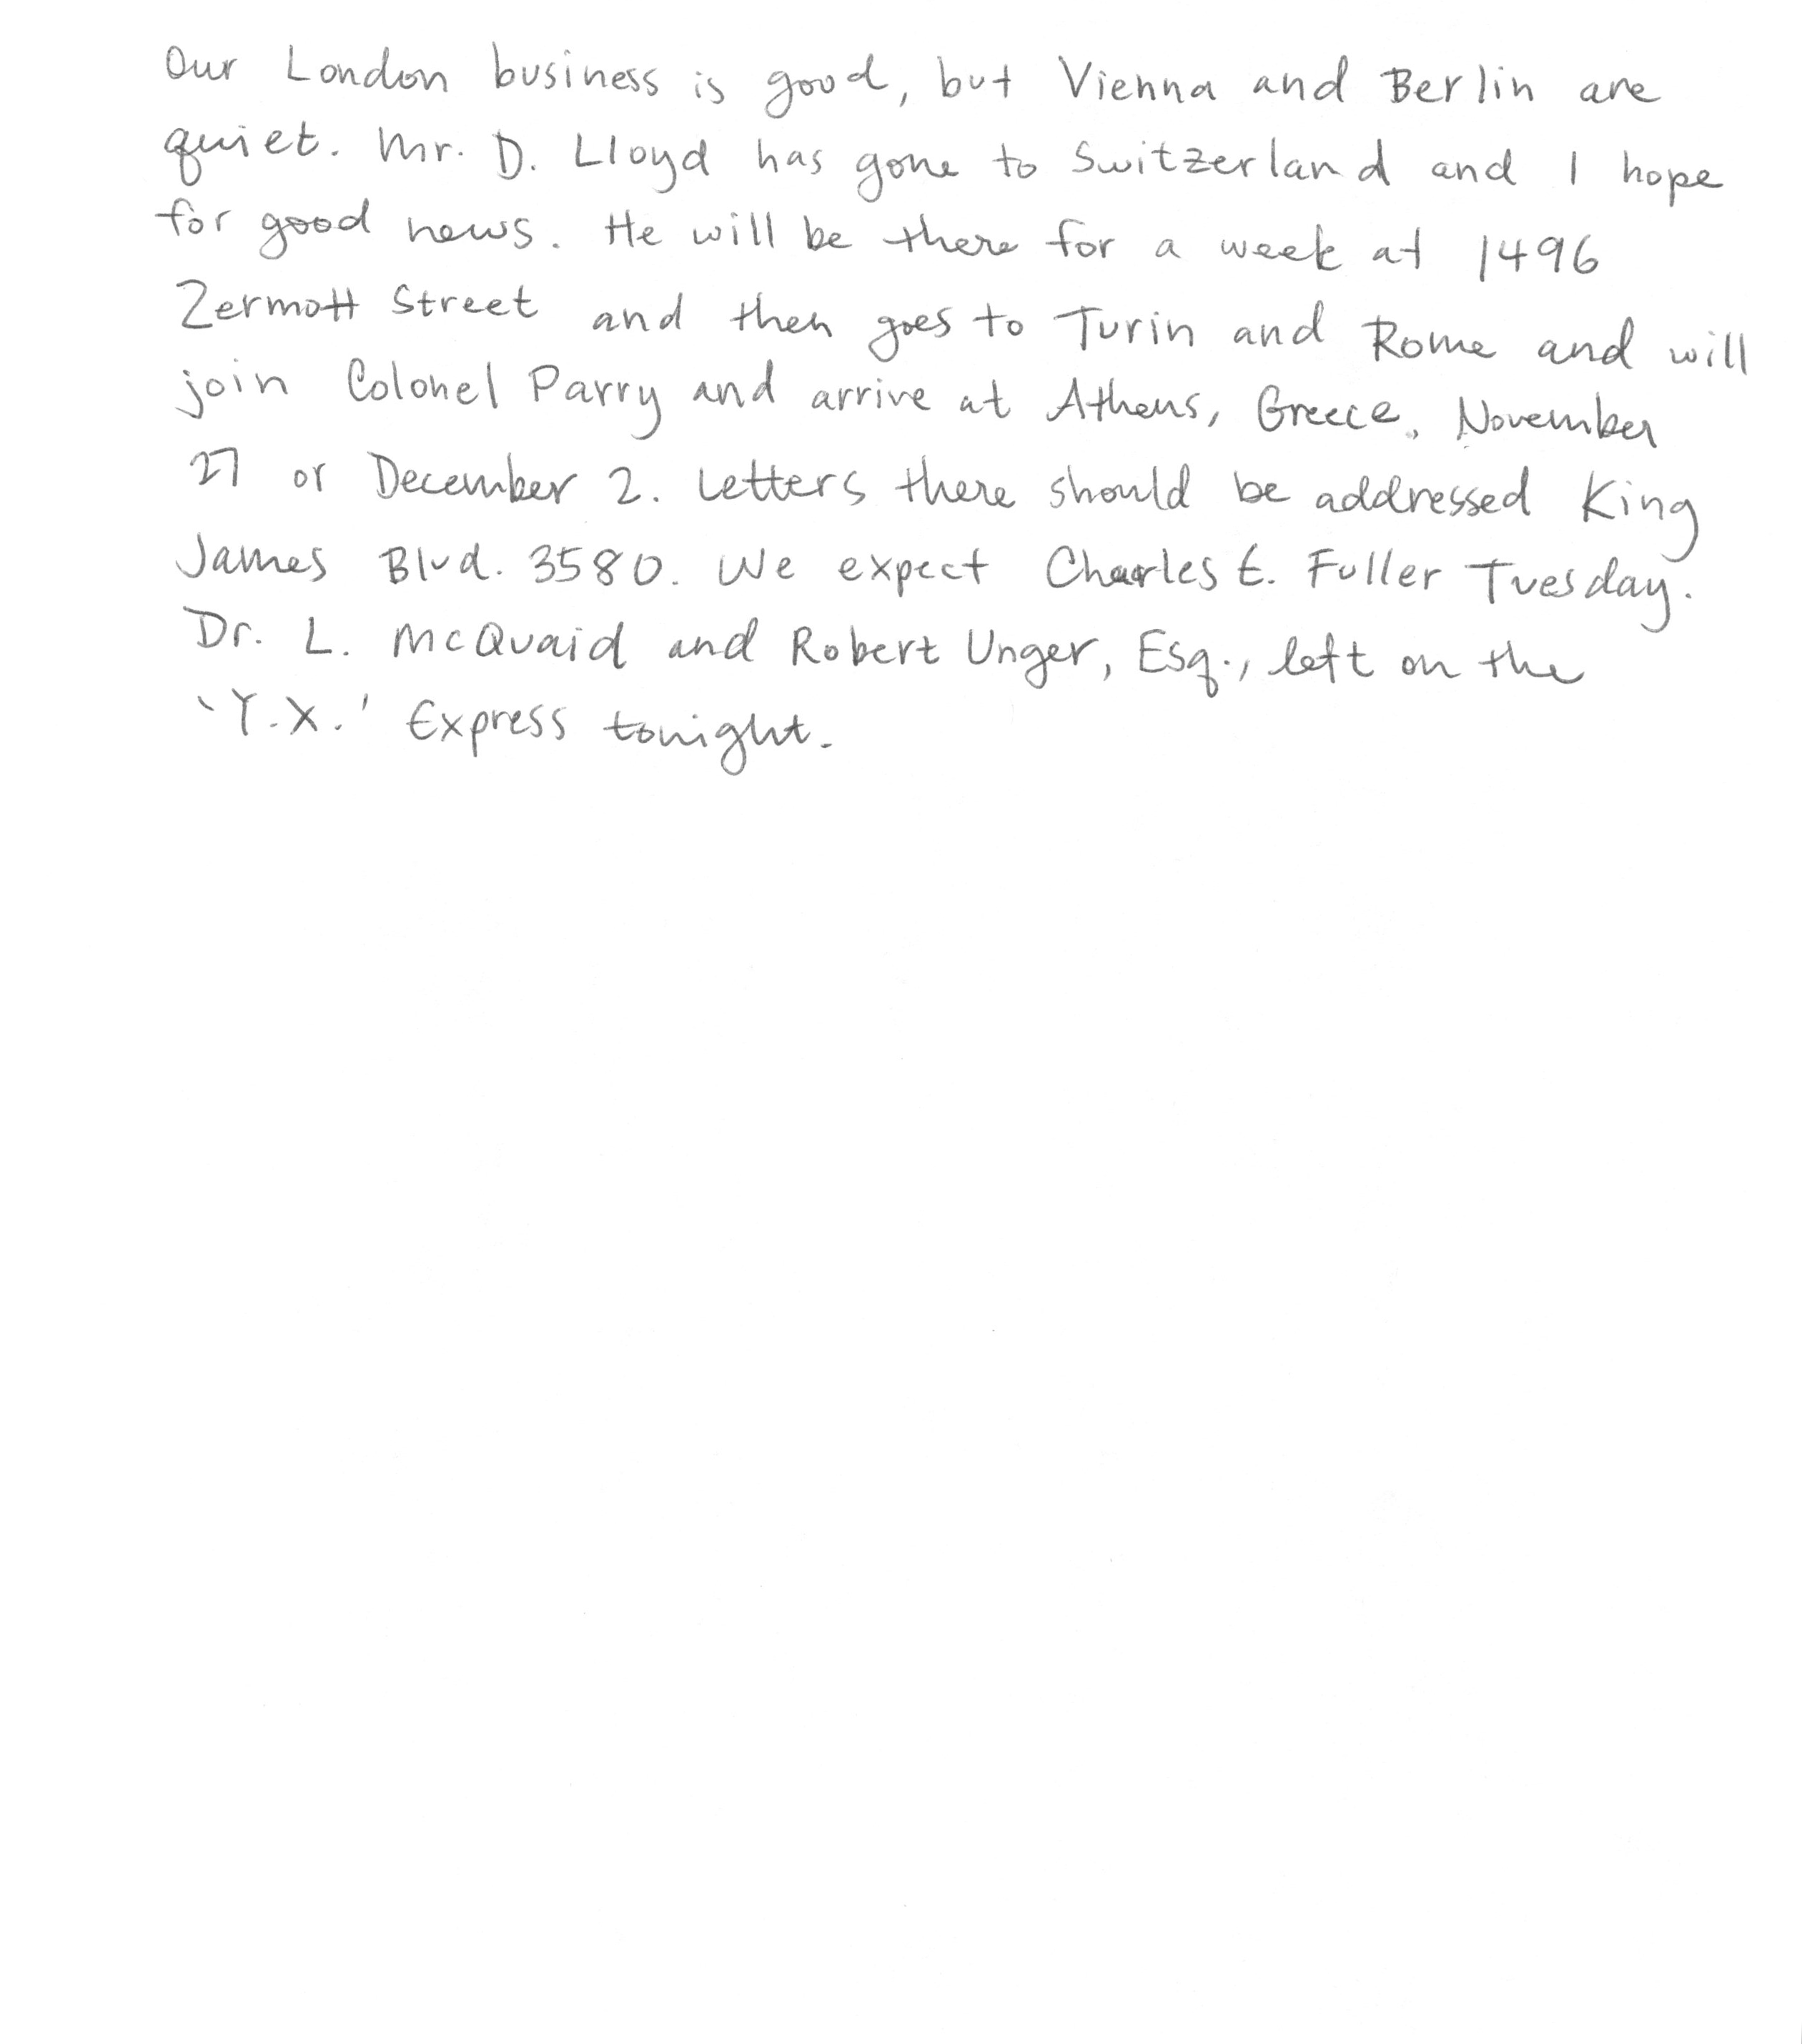 Our London business is good, but Vienna and Berlin are
quiet. Mr. D. Lloyd has gone to Switzerland and I hope
for good news. He will be there for a week at 1496
Zermott Street and then goes to Turin and Rome and will
join Colonel Parry and arrive at Athens, Greece, November
27 or December 2. Letters there should be addressed King
James Blvd. 3580. We expect Charles E. Fuller Tuesday.
Dr. L. McQuaid and Robert Unger, Esq., left on the
'Y.X.' Express tonight.